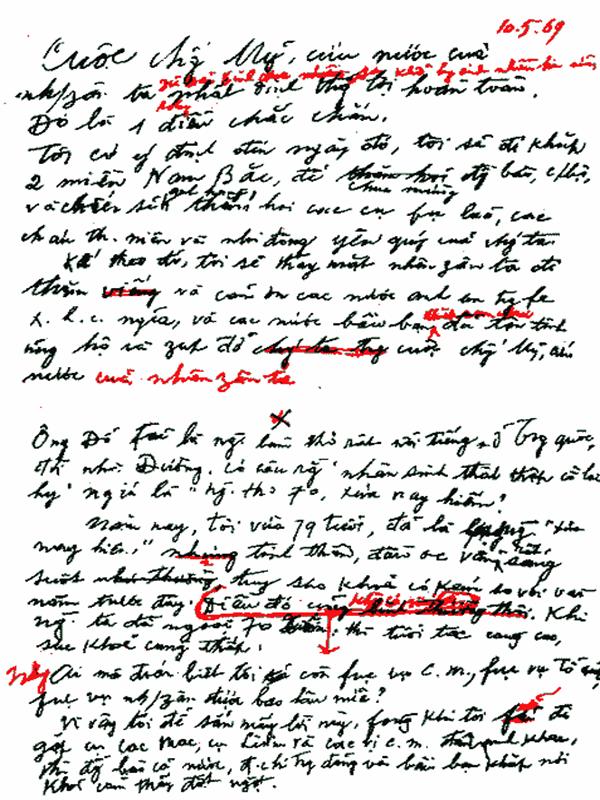 10.5.69
Cuộc chg' Mỹ, cứu nước của
nh/zân ta nhất định thg' lợi hoàn toàn.
Đó là 1 điều chắc chắn.
Tôi có ý định đến ngày đó, tôi sẽ đi khắp
2 miền Nam Bắc, để chúc mừng đg bào, c/bộ,
và ch/sĩ thăm hỏi các cụ fụ lão, các
cháu th. niên và nhi đồng yêu quý của chg' ta.
Kế theo đó, tôi sẽ thay mặt nhân zân ta đi
thăm và cảm ơn các nước anh em
x. h. c. nghĩa, và các nước bầu bạn đã tận tình
ủng hộ và zúp đỡ cuộc chg' Mỹ, cứu
nước của nhân zân ta
x
Ông Đỗ Fủ là ng. làm thơ rất nổi tiếng ở Trg quốc,
đời nhà Đường. Có câu rằg "nhân sinh thất thập cổ lai
hy" nghĩa là "ng. thọ 70, xưa nay hiếm".
Năm nay, tôi vừa 79 tuổi, đã là "xưa
nay hiếm" nhưng tinh thần, đầu óc vẫn rất sáng
suốt, tuy sức khoẻ có kém so với vài
năm trước đây. Khi
ng. ta đã ngoài 70 thì tuổi tác càng cao,
sức khoẻ càng thấp.
Nhưng Ai mà đoán biết tôi còn fục vụ C.M., fục vụ Tổ quốc,
fục vụ nh/zân được bao lâu nữa?
Vì vậy tôi để sẵn mấy lời này, fòng khi tôi đi
gặp cụ Các Mác, cụ Lênin và các vị C.M. đàn anh khác,
thì đg bào cả nước, đ.chí trg đảng và bầu bạn khắp nơi
khỏi cảm thấy đột ngột.